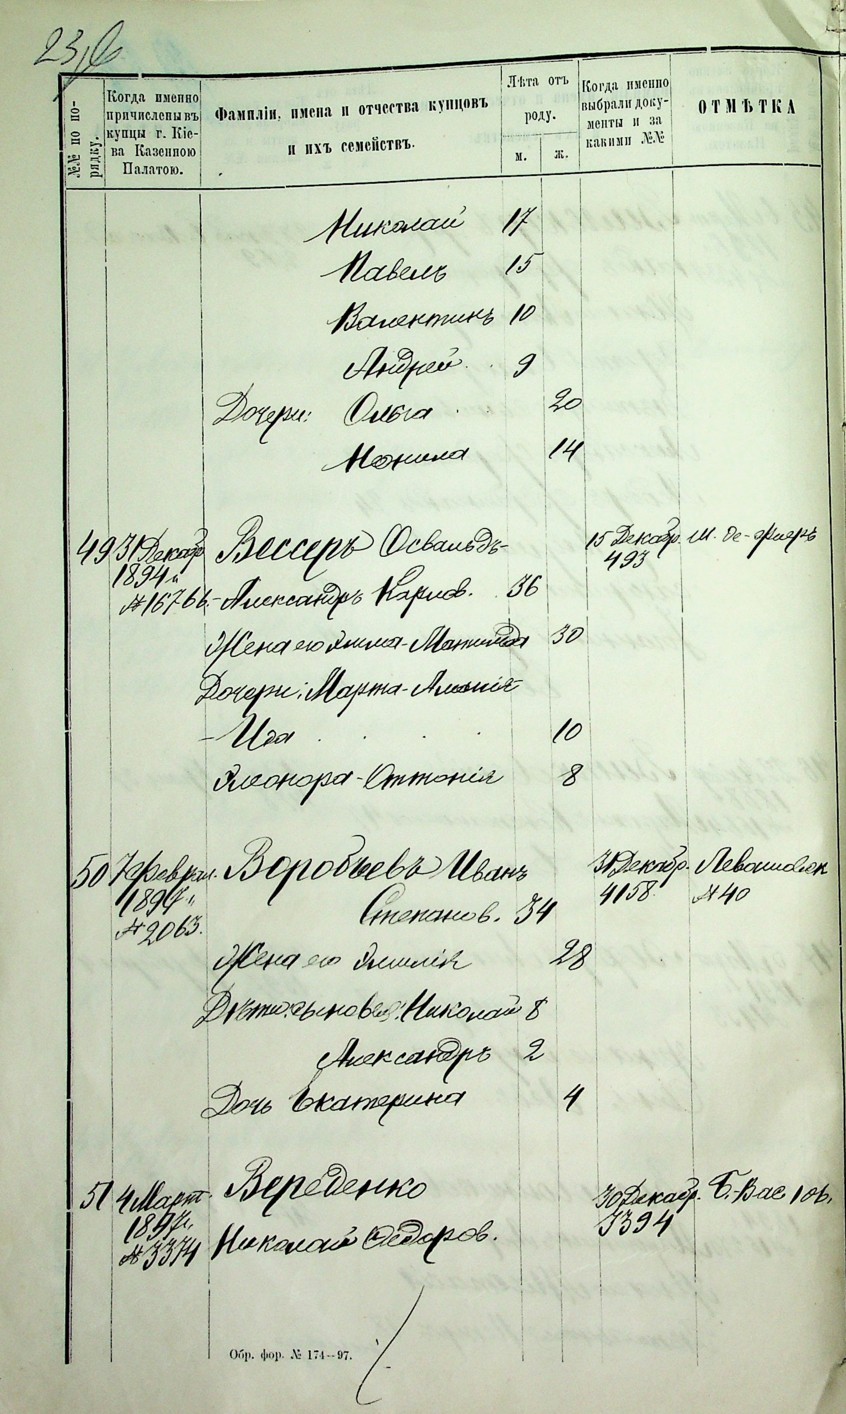 №№ по по-
рядку.
Когда именно
причислены въ
купцы г. Кіе-
ва Казенною
Палатою.
Фамиліи, имена и отчества купцовъ
и ихъ семействъ.
Лѣта отъ
роду.
м. ж.
Когда именно
выбрали доку-
менты и за
какими №№
ОТМѢТКА
Николай 17
Павелъ 15
Валентинъ 10
Андрей 9
Дочери: Ольга 20
Неонила 14
49 31 Декабр. Вессеръ Освальдъ- 15 Декабр. Ш. де-Фаеръ
1894 г. 493
№ 16766. -Александръ Карлов. 36
Жена его Эмма-Матильда 30
Дочери: Марта-Амалія-
-Ида 10
Элеонора-Оттонія 8
50 7 Феврал. Воробьевъ Иванъ 31 Декабр. Левашовск
1897 г. Степанов. 34 4158. № 40
№ 2063.
Жена его Эмилія 28
Дѣти: сыновья: Николай 8
Александръ 2
Дочь Екатерина 4
51 4 Март. Вереденко 30 Декабр. Б.-Вас 106.
1897 г. 3394
№ 3374 Николай Федоров.
Обр. фор. № 174—97.